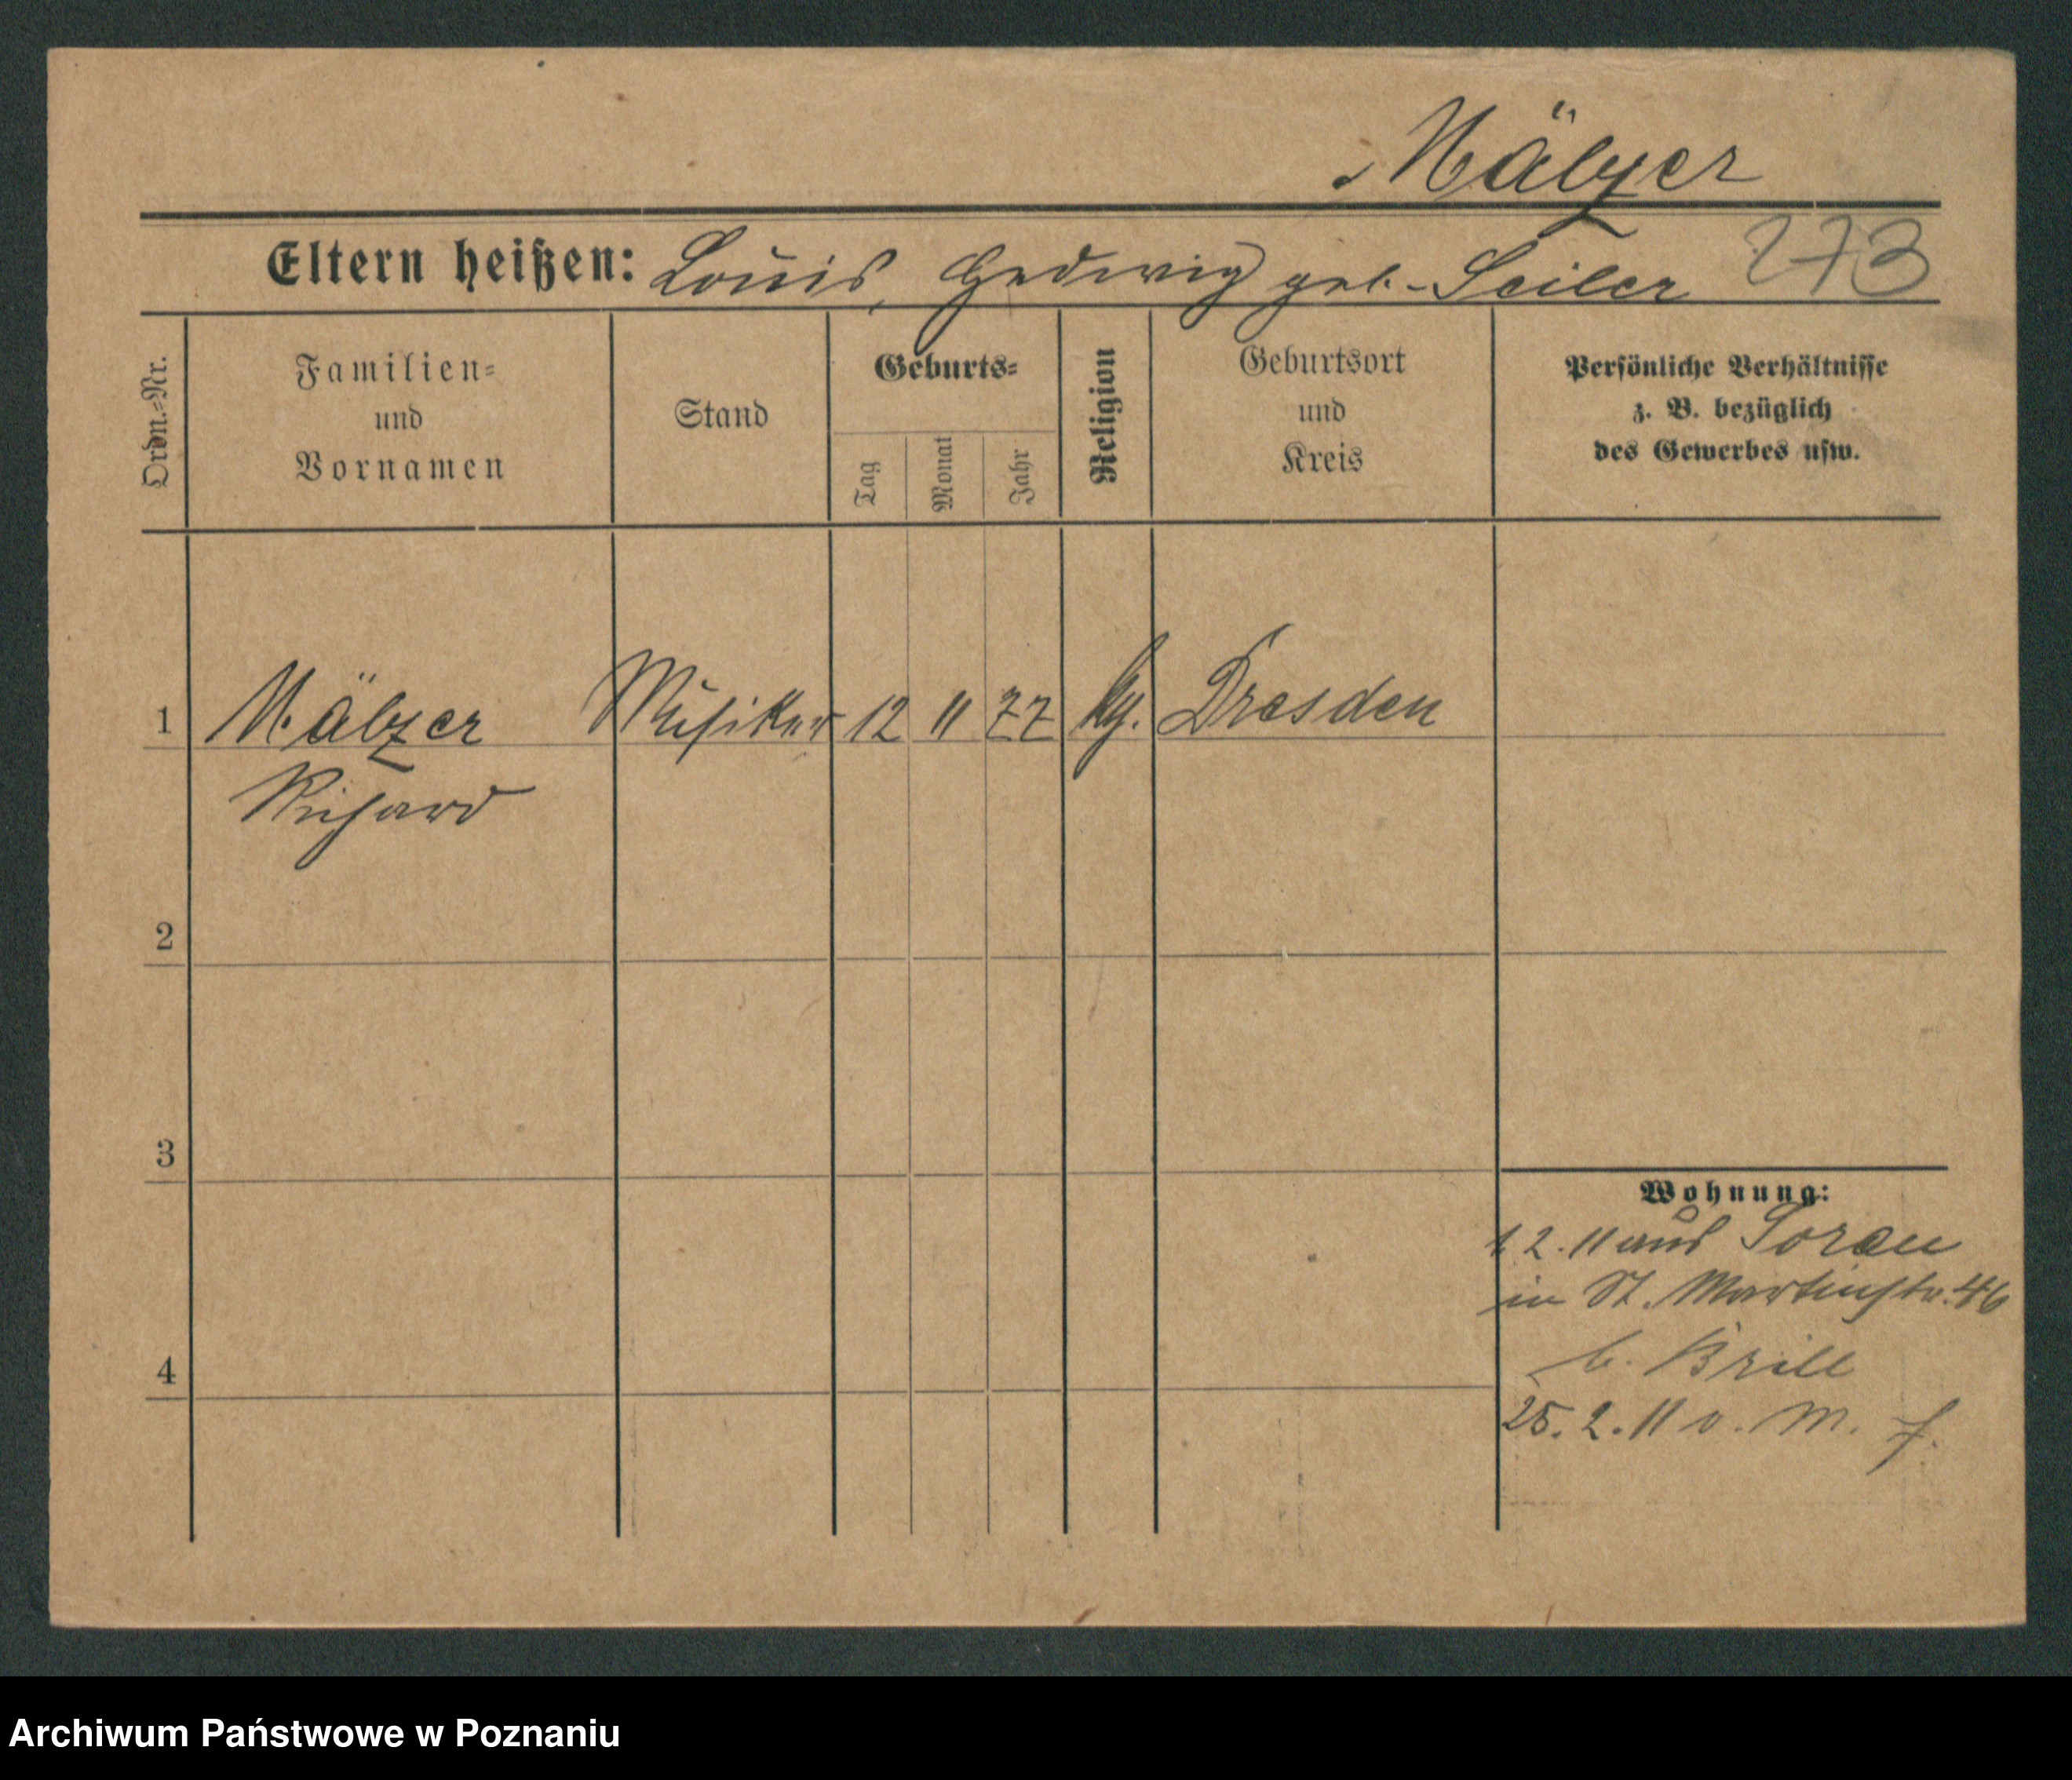 Mälzer
Eltern heißen: Louis, Hedwig geb. Seiler 273
Ordn.-Nr.
Familien-
und
Vornamen
Stand
Geburts-
Tag
Monat
Jahr
Religion
Geburtsort
und
Kreis
Persönliche Verhältnisse
z. B. bezüglich
des Gewerbes usw.
1 Mälzer Musiker 12 11 77 Dresden
Richard
2
3
4
Wohnung:
1.2.11 aus Sorau
in St. Martinstr. 46
b. Brill
25.2.11 v. M.
Archiwum Państwowe w Poznaniu